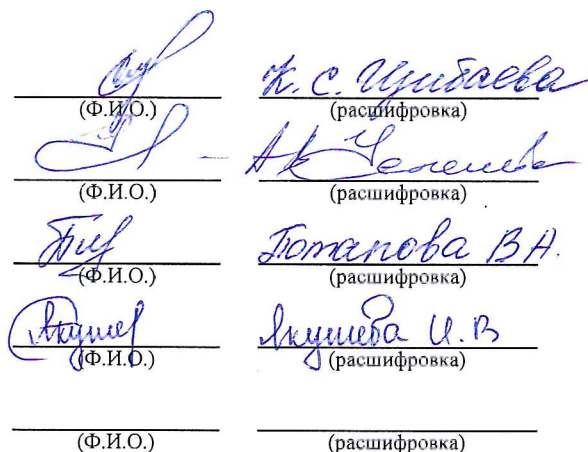 К. С. Цуибаева
(Ф.И.О.) (расшифровка)
А К
(Ф.И.О.) (расшифровка)
Потапова В А.
(Ф.И.О.) (расшифровка)
Якушев Якушева И. В
(Ф.И.О.) (расшифровка)
(Ф.И.О.) (расшифровка)